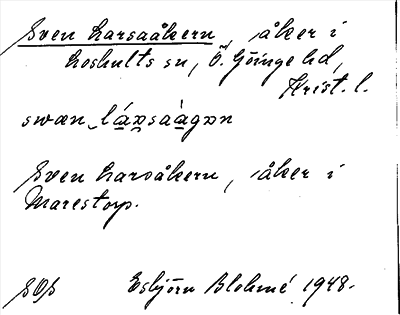 Sven Larsaåkern, åker i
Loshults sn, Ö. Göinge hd,
Krist. l.
swæn lánsaàgən
Sven Larsåkern, åker i
Marestorp.
SOS Esbjörn Blohmé 1948.